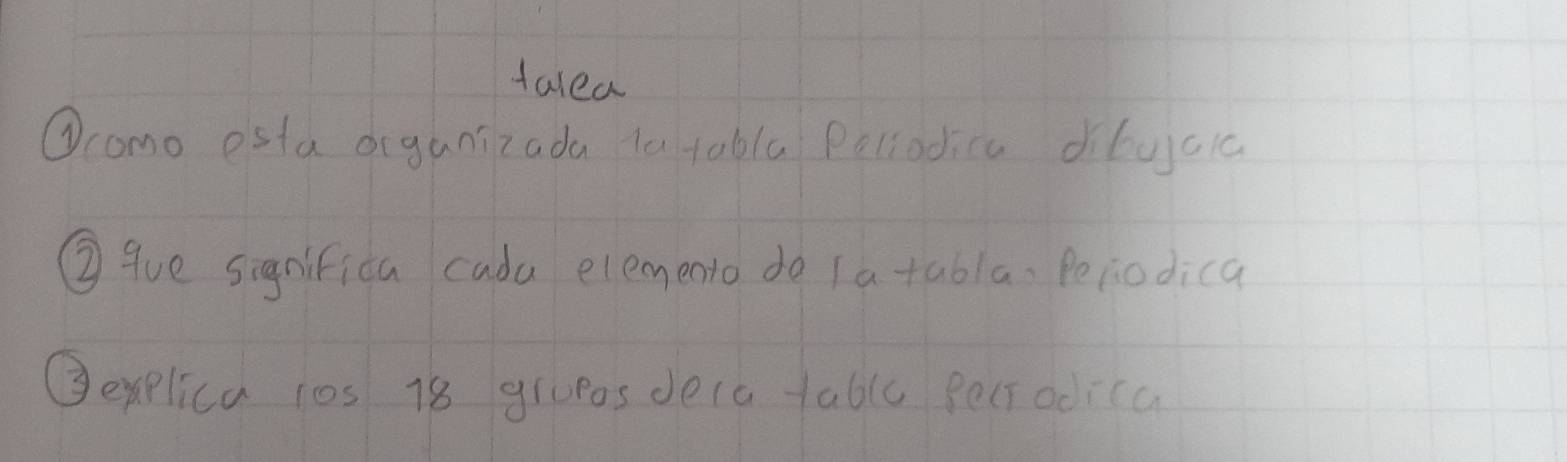 tarea
① como esta organizada la tabla Periodica dibujala
② que significa cada elemento de la tabla. Periodica
③ explica los 18 grupos de la tabla Periodica